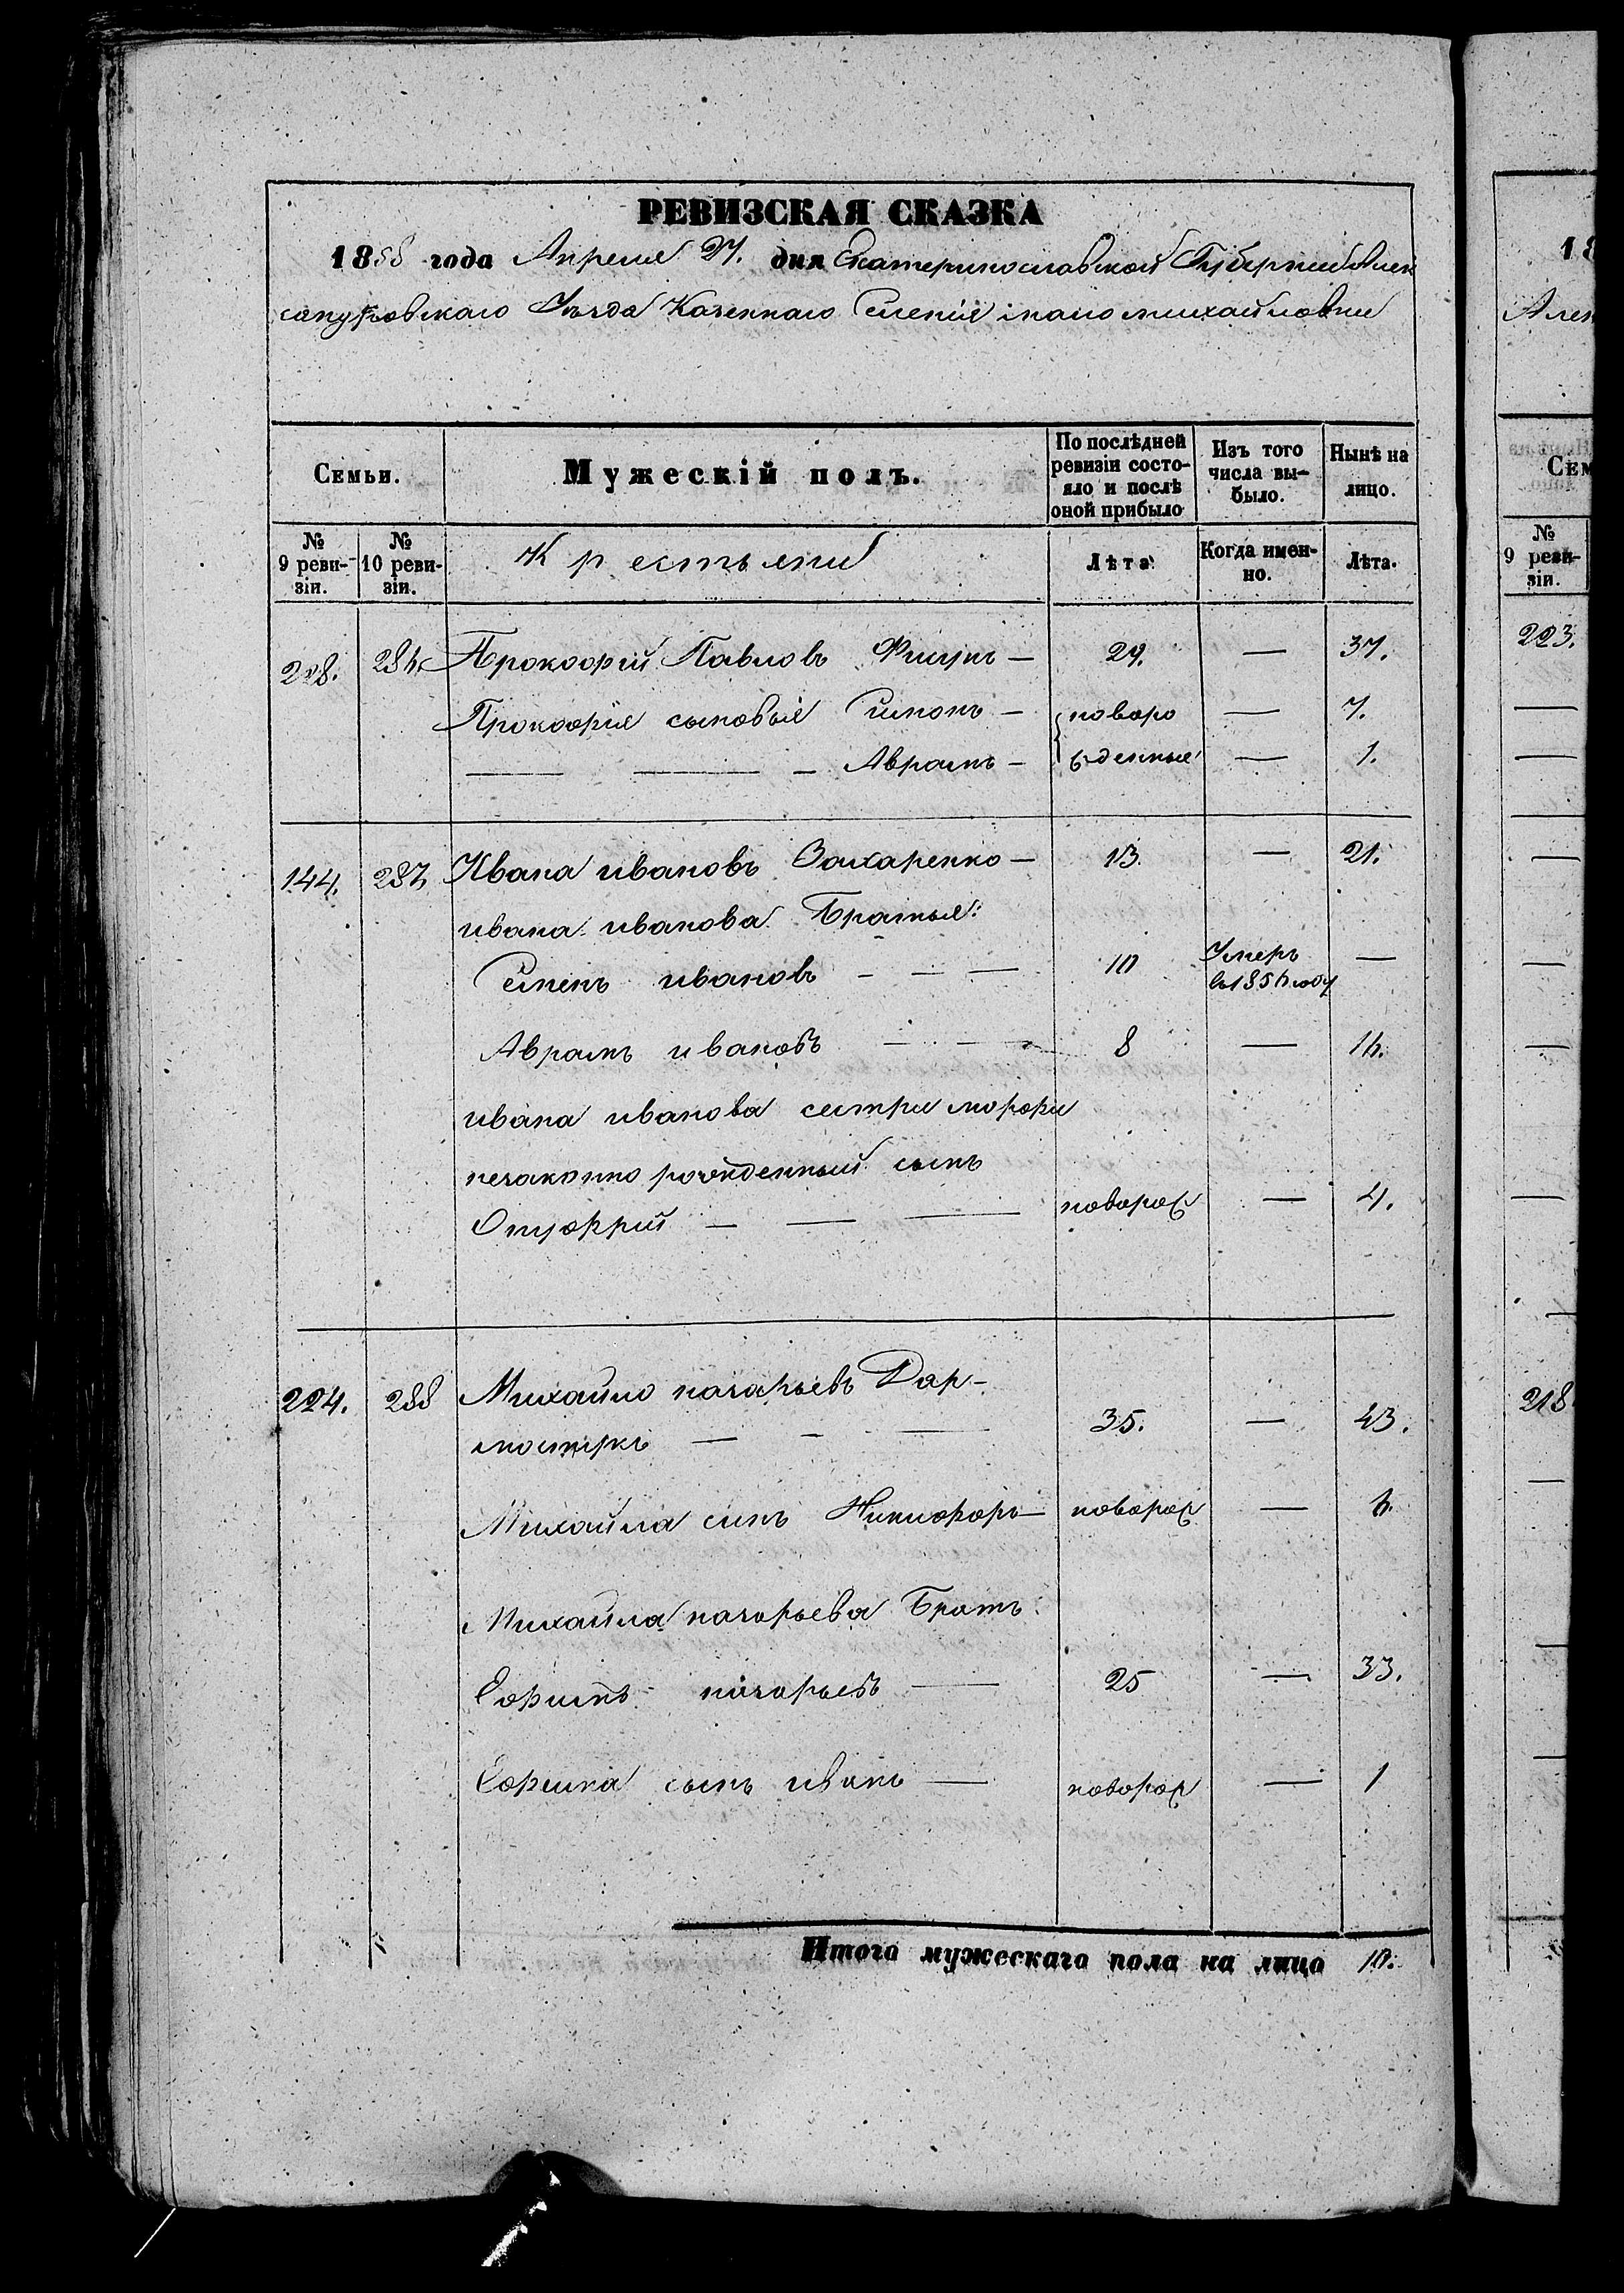 РЕВИЗСКАЯ СКАЗКА
1858 года Апреля 27. дня Екатеринославской Губерніи Алек
сандровскаго Уѣзда Казеннаго Селенія мало михайловки
Семьи.
Мужескій полъ.
По послѣдней ревизіи состо-яло и послѣ оной прибыло
Изъ того числа вы-было.
Нынѣ на лицо.
№ 9 реви-зіи.
№ 10 реви-зіи.
Крестьяни
Лѣта
Когда имен-но.
Лѣта.
286 Прокофій Павловъ — 29. — 37.
Прокофія сыновья Симонъ — новоро — 7.
— — — Аврамъ — жденные — 1.
144. 287 Ивана ивановъ Захаренко — 13. — 21.
ивана иванова Братья:
Семенъ ивановъ - — — 10 Умеръ —
в 1856 году
Аврамъ ивановъ — — 8 — 16.
ивана иванова сестри
незаконно рожденный сынъ
Онуфрій — — — новорож — 4.
224. 288 Михайло назарьевъ Дар-
— - — 35. — 43.
Михайла синъ Никифоръ — новорож — 6.
Михайла назарьева Братъ:
Ефимъ назарьевъ — 25 — 33.
Ефима сынъ иванъ — новорож — 1
Итого мужескаго пола на лицо 10.
18
Алек
Сем
№ 9 реви-зіи.
223.
218